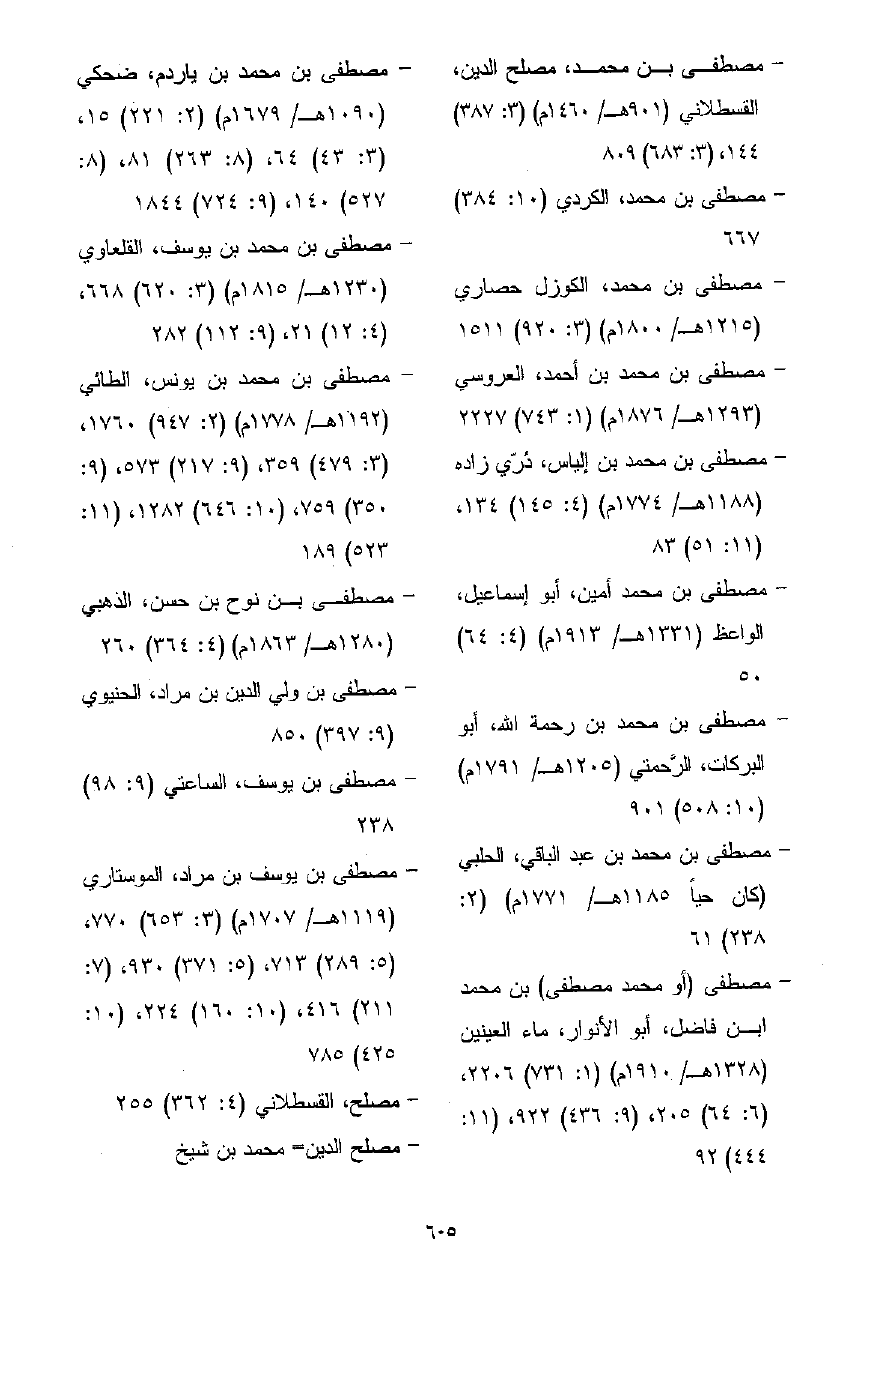 - مصطفى بن محمد، مصلح الدين،
القسطلاني (٩٠١هـ/ ١٤٦٠م) (٣: ٣٨٧)
١٤٤، (٣: ٦٨٣) ٨٠٩
- مصطفى بن محمد، الكردي (١٠: ٣٨٤)
٦٦٧
- مصطفى بن محمد، الكوزل حصاري
(١٢١٥هـ/ ١٨٠٠م) (٣: ٩٢٠) ١٥١١
- مصطفى بن محمد بن أحمد، العروسي
(١٢٩٣هـ/ ١٨٧٦م) (١: ٧٤٣) ٢٢٢٧
- مصطفى بن محمد بن إلياس، دُرّي زاده
(١١٨٨هـ/ ١٧٧٤م) (٤: ١٤٥) ١٣٤،
(١١: ٥١) ٨٣
- مصطفى بن محمد أمين، أبو إسماعيل،
الواعظ (١٣٣١هـ/ ١٩١٣م) (٤: ٦٤)
٥٠
- مصطفى بن محمد بن رحمة الله، أبو
البركات، الرَّحمتي (١٢٠٥هـ/ ١٧٩١م)
(١٠: ٥٠٨) ٩٠١
- مصطفى بن محمد بن عبد الباقي، الحلبي
(كان حياً ١١٨٥هـ/ ١٧٧١م) (٢:
٢٣٨) ٦١
- مصطفى (أو محمد مصطفى) بن محمد
ابن فاضل، أبو الأنوار، ماء العينين
(١٣٢٨هـ/ ١٩١٠م) (١: ٧٣١) ٢٢٠٦،
(٦: ٦٤) ٢٠٥، (٩: ٤٣٦) ٩٢٢، (١١:
٤٤٤) ٩٢
- مصطفى بن محمد بن ياردم، ضحكي
(١٠٩٠هـ/ ١٦٧٩م) (٢: ٢٢١) ١٥،
(٣: ٤٣) ٦٤، (٨: ٢٦٣) ٨١، (٨:
٥٢٧) ١٤٠، (٩: ٧٢٤) ١٨٤٤
- مصطفى بن محمد بن يوسف، القلعاوي
(١٢٣٠هـ/ ١٨١٥م) (٣: ٦٢٠) ٦٦٨،
(٤: ١٢) ٢١، (٩: ١١٢) ٢٨٢
- مصطفى بن محمد بن يونس، الطائي
(١١٩٢هـ/ ١٧٧٨م) (٢: ٩٤٧) ١٧٦٠،
(٣: ٤٧٩) ٣٥٩، (٩: ٢١٧) ٥٧٣، (٩:
٣٥٠) ٧٥٩، (١٠: ٦٤٦) ١٢٨٢، (١١:
٥٢٣) ١٨٩
- مصطفى بن نوح بن حسن، الذهبي
(١٢٨٠هـ/ ١٨٦٣م) (٤: ٣٦٤) ٢٦٠
- مصطفى بن ولي الدين بن مراد، الحنيوي
(٩: ٣٩٧) ٨٥٠
- مصطفى بن يوسف، الساعتي (٩: ٩٨)
٢٣٨
- مصطفى بن يوسف بن مراد، الموستاري
(١١١٩هـ/ ١٧٠٧م) (٣: ٦٥٣) ٧٧٠،
(٥: ٢٨٩) ٧١٣، (٥: ٣٧١) ٩٣٠، (٧:
٢١١) ٤١٦، (١٠: ١٦٠) ٢٢٤، (١٠:
٤٢٥) ٧٨٥
- مصلح، القسطلاني (٤: ٣٦٢) ٢٥٥
- مصلح الدين= محمد بن شيخ
٦٠٥